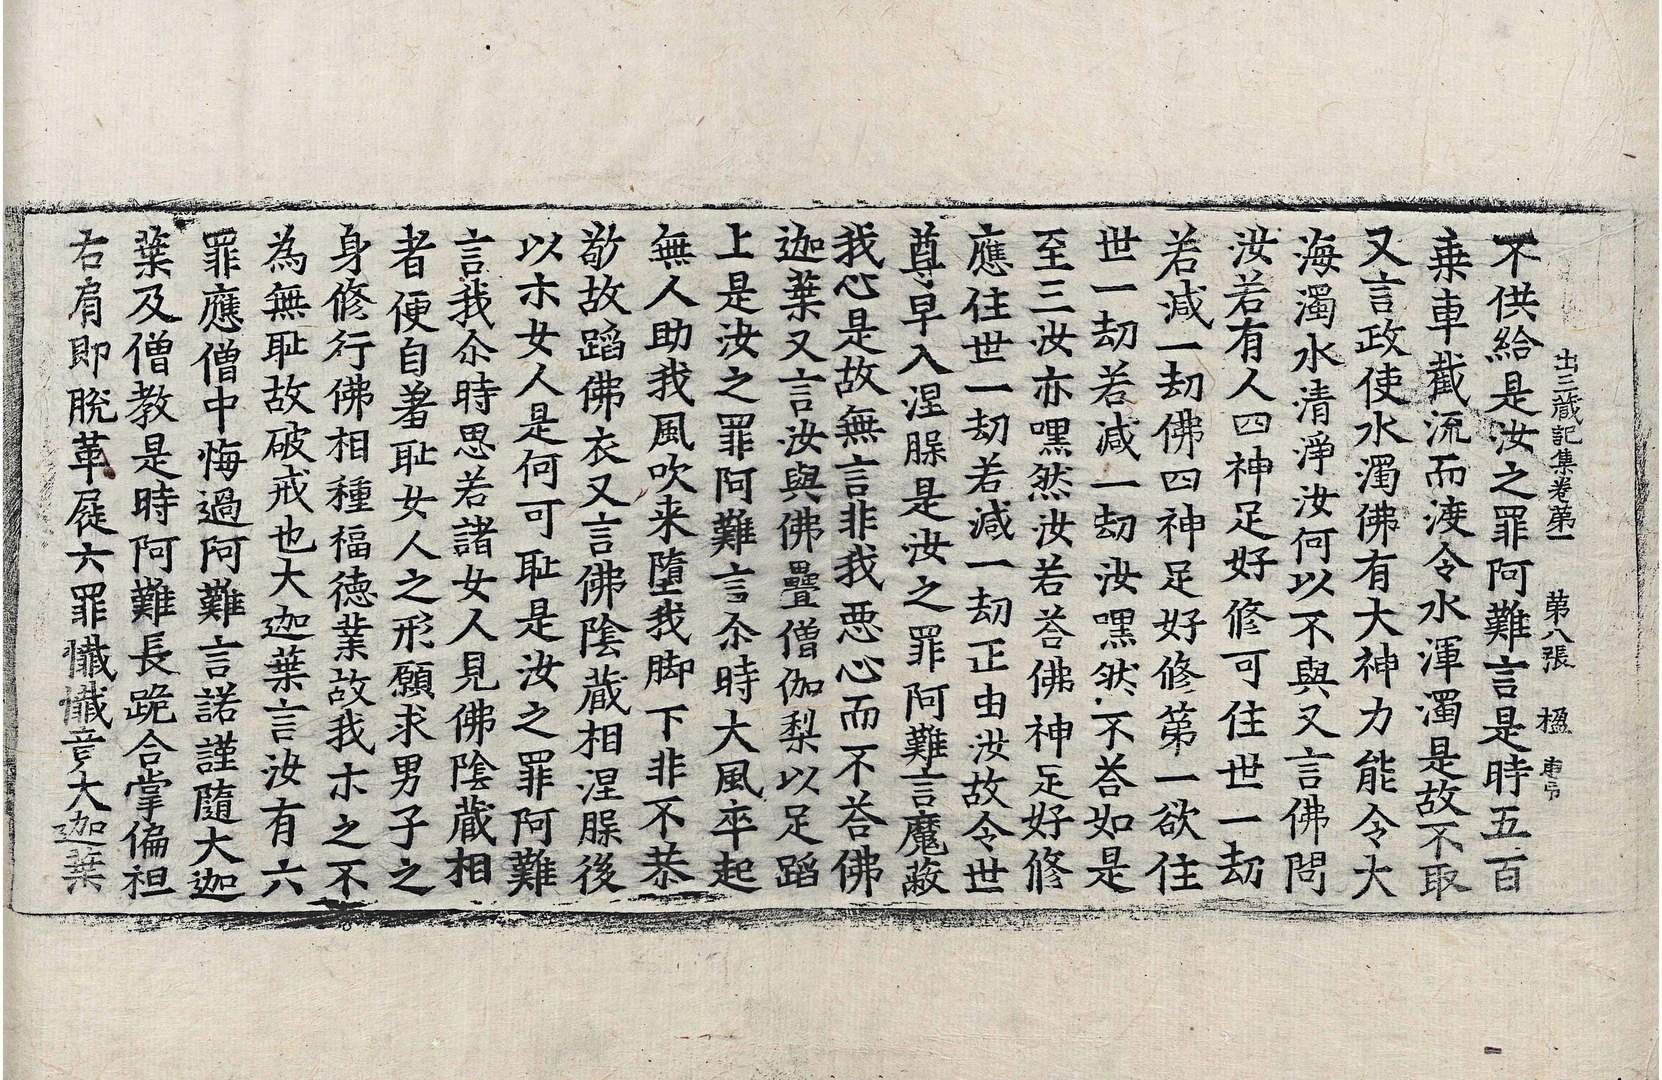 出三藏記集卷第一　第八張　楹
不供給是汝之罪阿難言是時五百
乗車截流而渡令水渾濁是故不取
又言政使水濁佛有大神力能令大
海濁水清淨汝何以不與又言佛問
汝若有人四神足好修可住世一劫
若減一劫佛四神足好修第一欲住
世一劫若減一劫汝嘿然不荅如是
至三汝亦嘿然汝若荅佛神足好修
應住世一劫若減一劫正由汝故令世
尊早入涅脲是汝之罪阿難言魔蔽
我心是故無言非我惡心而不荅佛
迦葉又言汝與佛疊僧伽梨以足蹈
上是汝之罪阿難言尒時大風卒起
無人助我風吹来墮我脚下非不恭
敬故蹈佛衣又言佛陰藏相涅脲後
以示女人是何可恥是汝之罪阿難
言我尒時思若諸女人見佛陰藏相
者便自羞恥女人之形願求男子之
身修行佛相種福德業故我示之不
為無恥故破戒也大迦葉言汝有六
罪應僧中悔過阿難言諾謹隨大迦
葉及僧教是時阿難長跪合掌偏袒
右肩即脫革屣六罪懺懺竟大迦葉